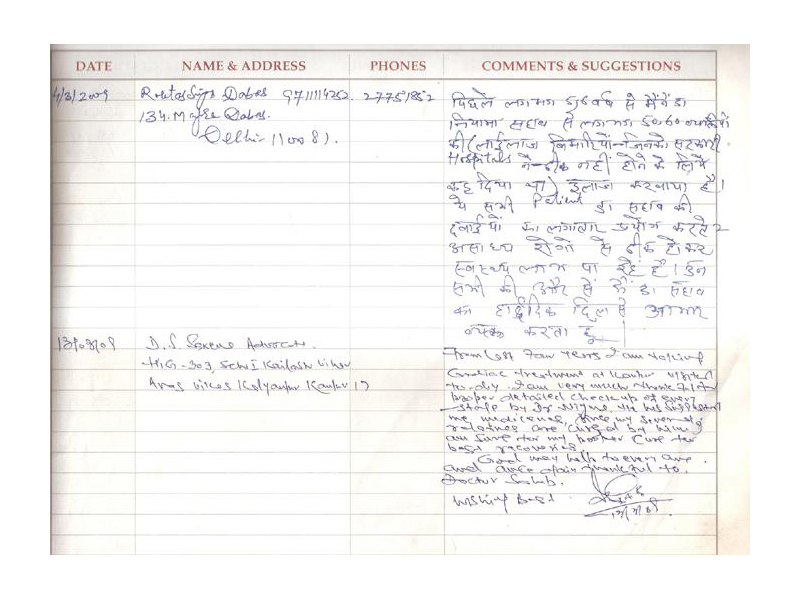 DATE NAME & ADDRESS PHONES COMMENTS & SUGGESTIONS
4/3/2009 Dabas 9711114252. 27751852
134. Dabas.
Delhi 110081.
पिछले लगभग 5,6 वर्ष से मैंने डा
सहाब से लगभग 50,60
की (लाईलाज बिमारियों जिनको सरकारी
Hospitals ने ठीक नहीं होने के लिये
कह दिया था) ईलाज करवाया है।
ये सभी Patient डा सहाब की
दवाईयों का लगातार प्रयोग करते 2
असाध्य रोगों से ठीक होकर
स्वास्थ्य लाभ पा रहे है। इन
सभी की और से मैं डा सहाब
का हार्द्दिक दिल से आभार
व्यक्त करता हु।
D. S. Saxena Advocate
HIG-303, Sch I Kailash Vihar
Avas Vikas Kalyanpur Kanpur 17
From last Four Years I am taking
Cardiac treatment at Kanpur
to-day. I am very much thankful for
proper detailed checkup of every
stage by Dr he has
me medicines, Since my several
relatives are cured by him I
am sure for my proper Cure for
best recoveries.
God may help to every one.
and once again thankful to.
Doctor Sahib.
Wishing Best